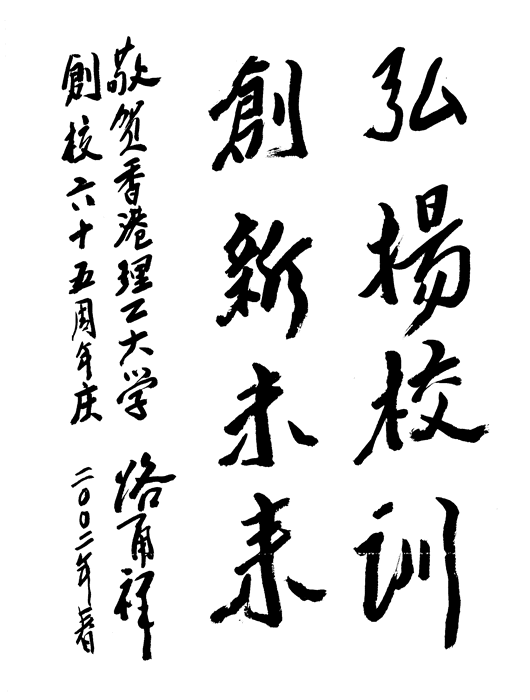 弘揚校训
創新未来
敬贺香港理工大学
創校六十五周年庆
路甬祥
二〇〇二年春